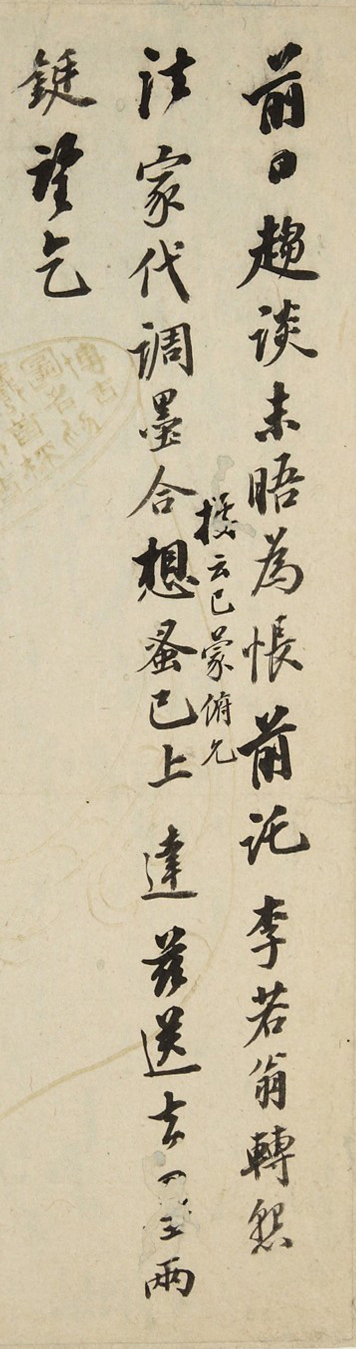 前日趨談未晤為悵前託李若翁轉懇
據云已蒙俯允
法家代調墨合想蚤已上達茲送去兩
錠望乞